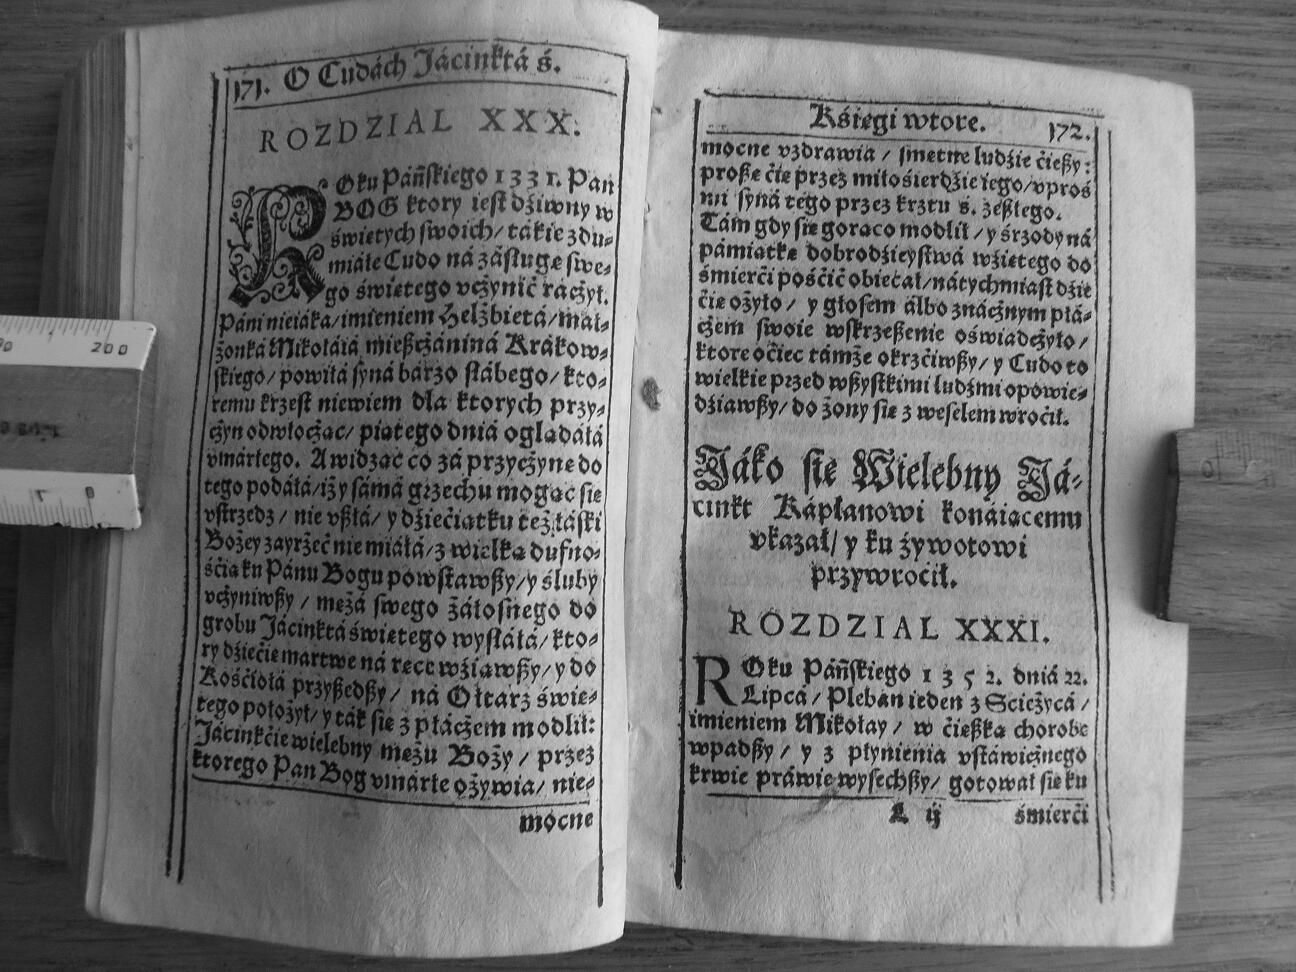 171. O Cudách Jácinktá ś.
ROZDZIAL XXX.
ROku Páńſkiego 1331. Pan
BOG ktory ieſt dźiwny w
świetych ſwoich/ tákie zdu⸗
miáłe Cudo ná záſługe ſwe⸗
go świetego vczynić racżył.
Páni nieiáka/ imieniem Helżbietá/ mał⸗
żonká Mikołáiá mießcżániná Krákow⸗
ſkiego/ powiłá ſyná bárzo ſłábego/ kto⸗
remu krzeſt niewiem dla ktorych przy⸗
cżyn odwłocżąc/ piątego dniá oglądáłá
vmárłego. A widząc co zá przycżyne do
tego podáłá/ iży ſámá grzechu mogąc ſie
vſtrzedz/ nie vßłá/ y dźiećiatku też łáſki
Bożey záyrżeć nie miáłá/ z wielką dufno⸗
śćią ku Pánu Bogu powſtawßy/ y śluby
vcżyniwßy/ mężá ſwego żáłoſnego do
grobu Jácinktá świętego wyſłáłá/ kto⸗
ry dźiećie martwe ná ręce wźiawßy/ y do
Kośćiołá przyßedßy/ ná Ołtarz świe⸗
tego położył/ y ták ſie z płácżem modlił:
Jácinkćie wielebny mężu Boży/ przez
ktorego Pan Bog vmárłe ożywia/ nie⸗
mocne
Kśięgi wtore. 172.
mocne vzdrawia/ ſmetne ludźie ćießy:
proßę ćie przez miłośierdźie iego/ vproś
mi ſyná tego przez krztu ś. zeßłego.
Tám gdy ſię goraco modlił/ y śrzody ná
pámiątkę dobrodźieyſtwá wźietego do
śmierći pośćić obiecał/ nátychmiaſt dźie
ćie ożyło/ y głoſem álbo znácżnym płá⸗
cżem ſwoie wſkrzeßenie oświadcżyło/
ktore oćiec támże okrzćiwßy/ y Cudo to
wielkie przed wßyſtkimi ludźmi opowie⸗
dźiawßy/ do żony ſię z weſelem wroćił.
Jáko ſie Wielebny Já⸗
cinkt Kápłanowi konáiącemu
vkazał/ y ku żywotowi
przywroćił.
ROZDZIAL XXXI.
ROku Páńſkiego 1352. dniá 22.
Lipcá/ Pleban ieden z Sćieżycá/
imieniem Mikołay/ w ćieżką chorobę
wpadßy/ y z płynienia vſtáwicżnego
krwie práwie wyſechßy/ gotował ſie ku
L ij śmierći